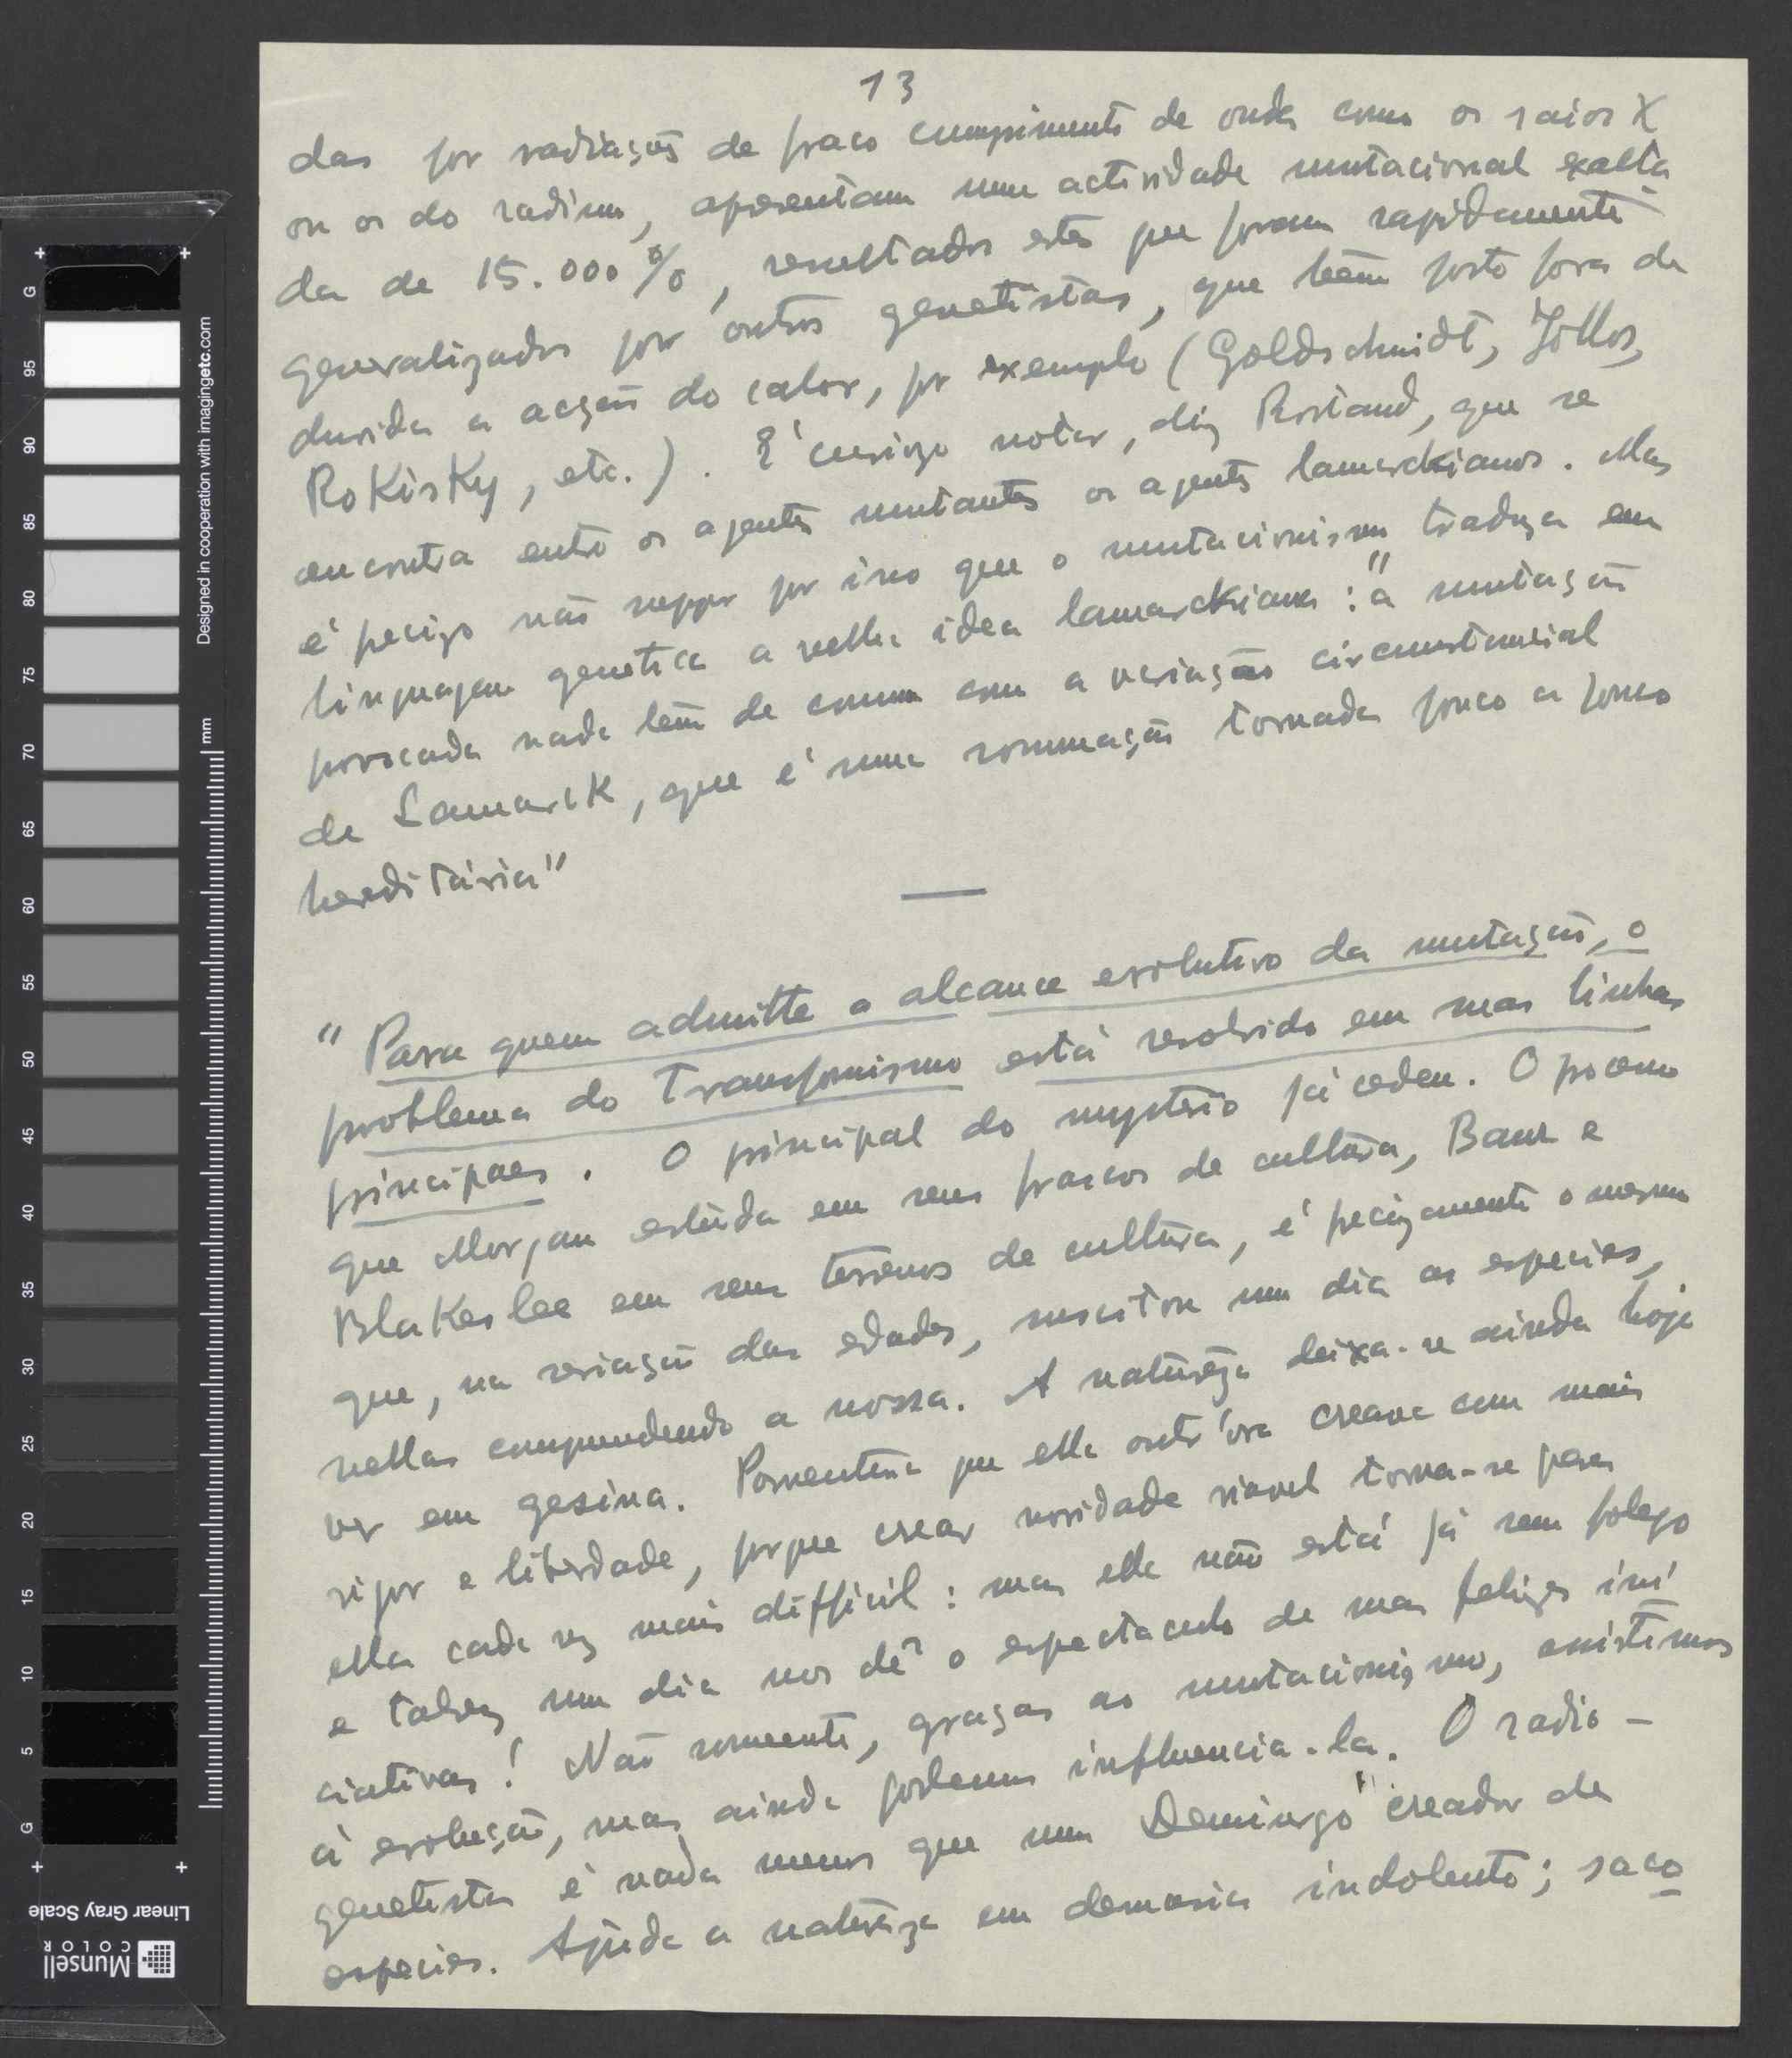 13
das por radiações de fraco cumprimento de onda como os raios X
ou os do radium, apresentam uma actividade mutacional exalta
da de 15.000%, resultados estes que foram rapidamente
generalizados por outros genetistas, que teem posto fora de
duvida a acção do calor, por exemplo (Goldschmidt, Jollos,
Rokisky, etc.). É curiozo notar, diz Rostand, que se
encontra entre os agentes mutantes os agentes lamarckianos. Mas
é precizo não suppor por isso que o mutacionismo traduza em
linguagem genetica a velha idea lamarckiana: "a mutação
provocada nada tem de comum com a variação circumstancial
de Lamarck, que é uma sommação tornada pouco a pouco
hereditária"
"Para quem admitte o alcance evolutivo da mutação, o
problema do Transformismo está resolvido em suas linhas
principaes. O principal do mysterio já cedeu. O processo
que Morgan estuda em seus frascos de cultura, Baur e
Blakeslee em seus terrenos de cultura, é precizamente o mesmo
que, na variação das edades, suscitou um dia as especies,
nellas comprehendendo a nossa. A natureza deixa-se ainda hoje
ver em gesina. Porventura que ella outr'ora creava com mais
vigor e liberdade, porque crear novidade viavel torna-se para
ella cada vez mais difficil: mas ella não está já sem folego
e talvez um dia nos dê o espectaculo de suas felizes ini
ciativas! Não somente, graças ao mutacionismo, assistimos
á evolução, mas ainda podemos influencia-la. O radio-
genetista é nada menos que um Demiurgo "creador de
especies. Ajuda a natureza em demasia indolente; saco
Designed in cooperation with imagingetc.com
mm
G
95
90
85
80
75
70
65
60
55
50
45
40
35
30
25
20
15
10
5
G
Linear Gray Scale
Munsell
COLOR